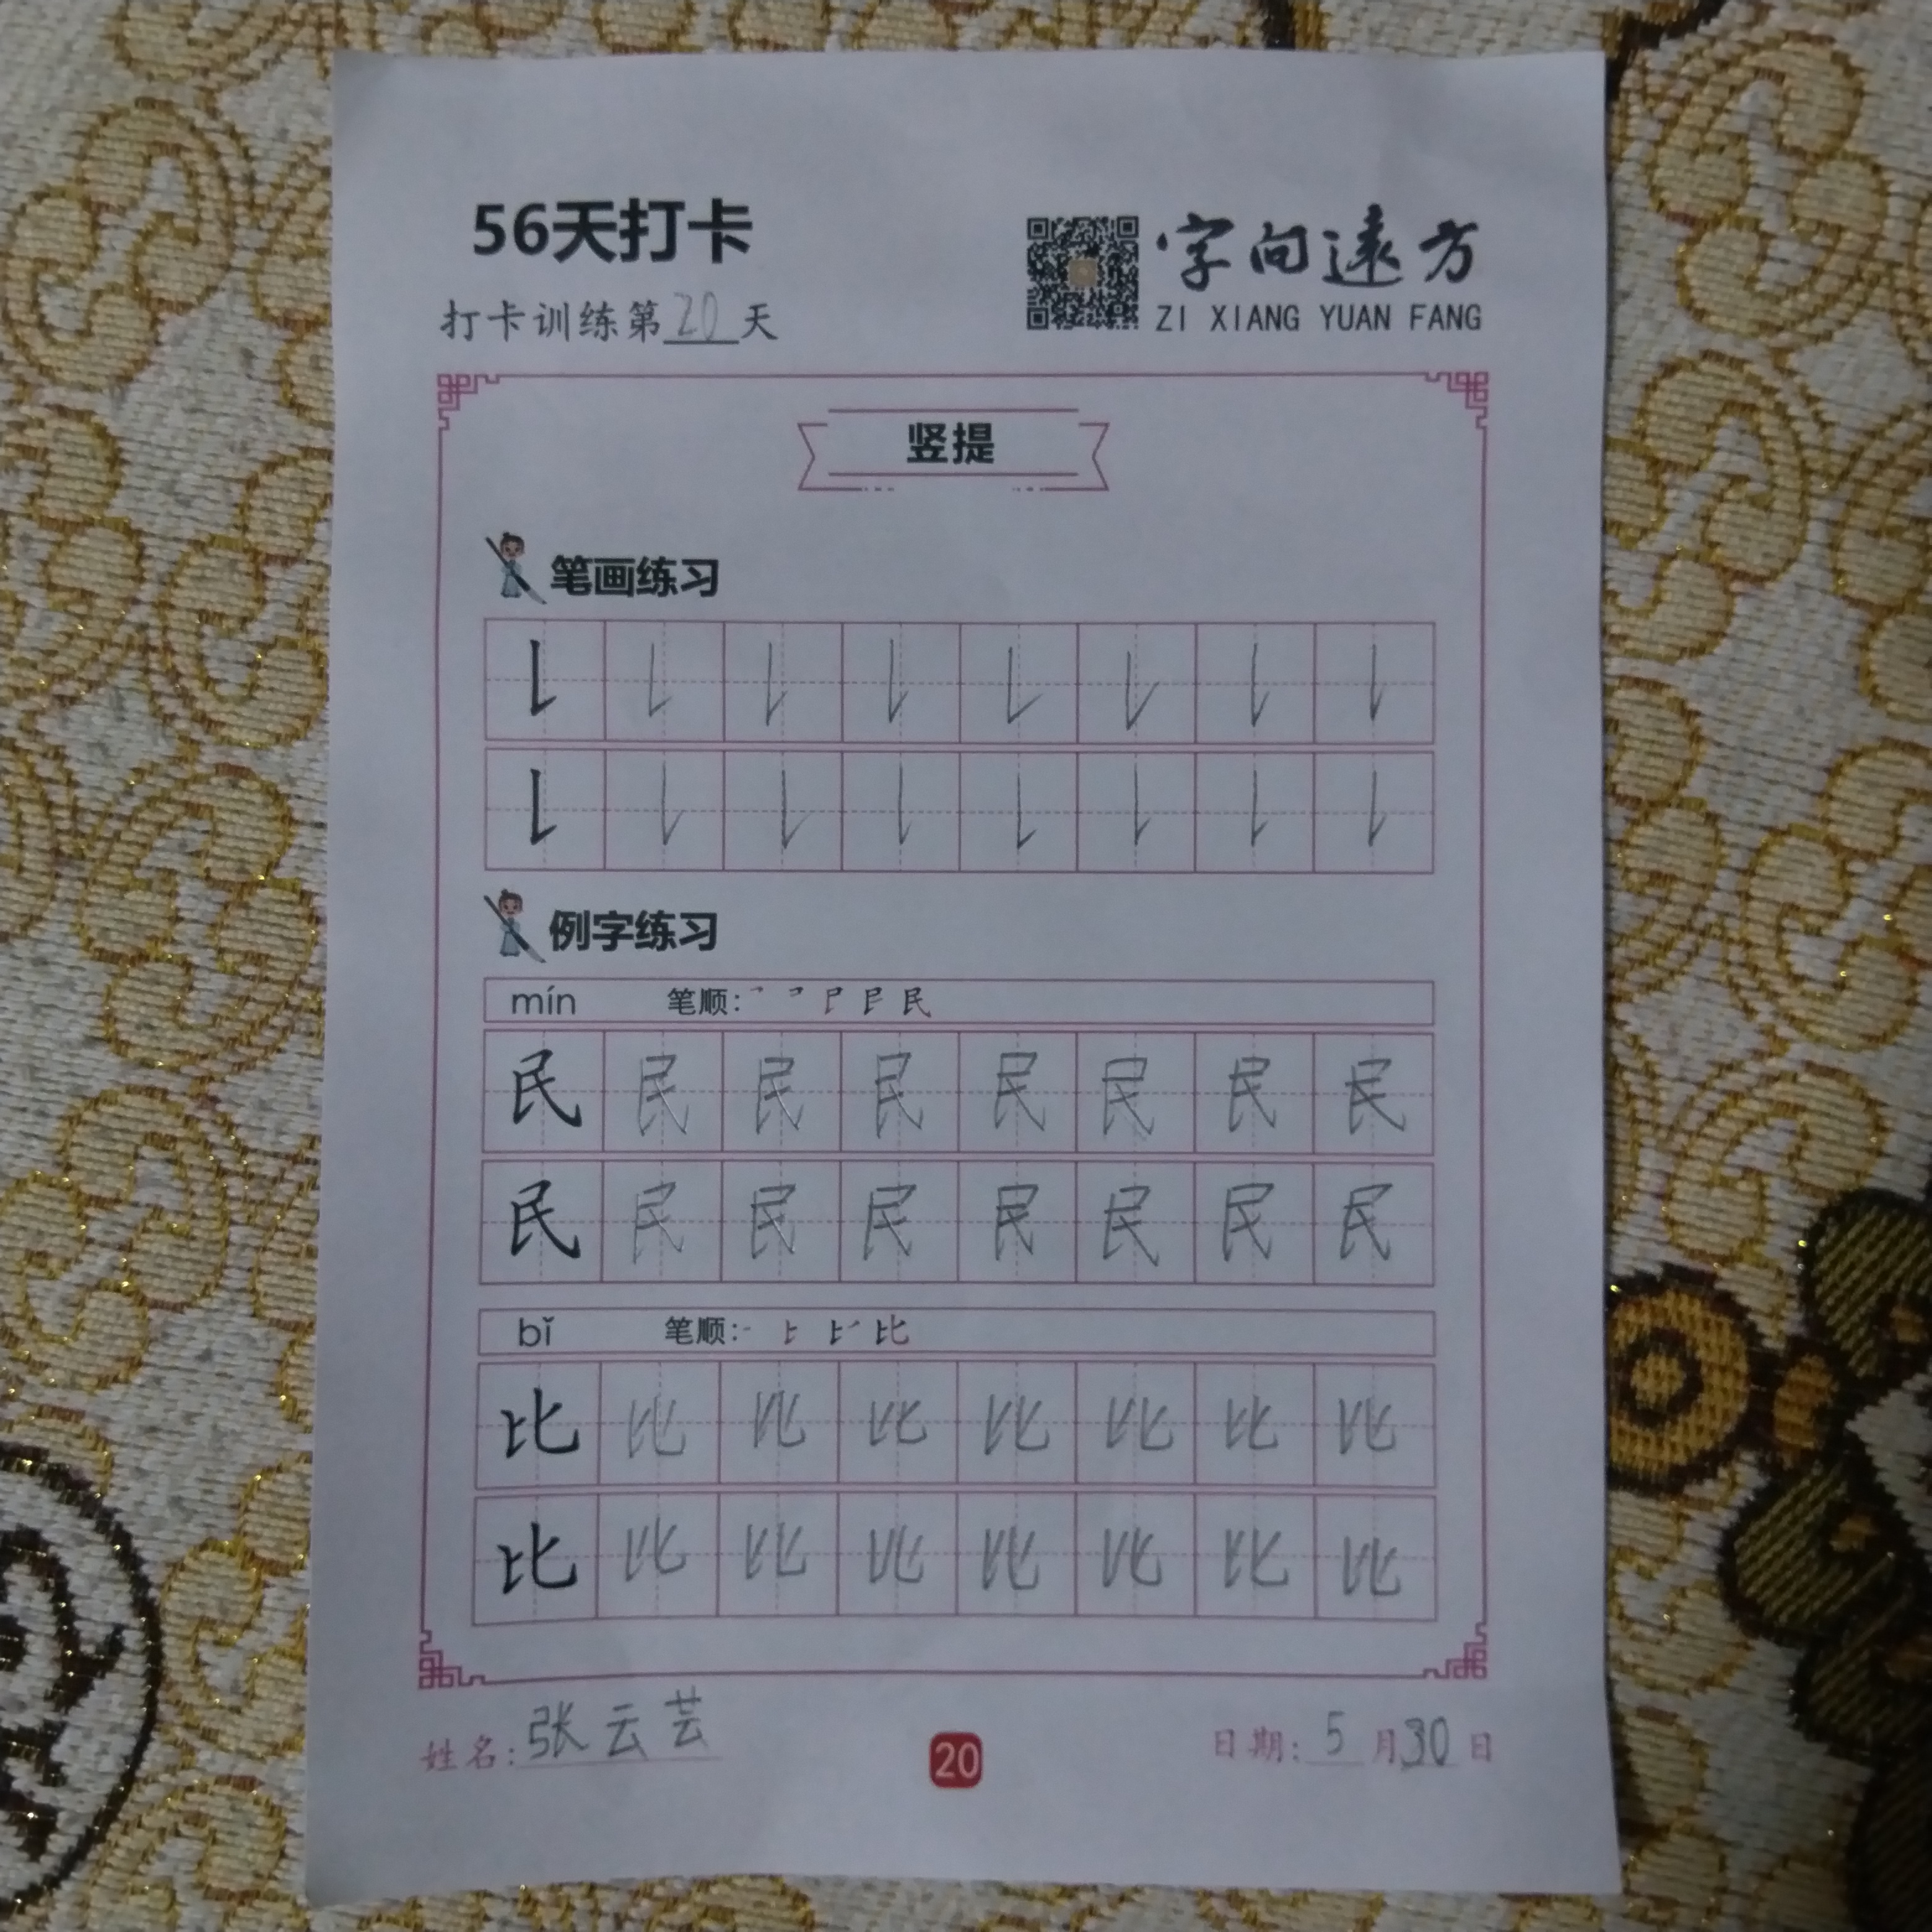 56天打卡
字向远方
ZI XIANG YUAN FANG
打卡训练第20天
竖提
笔画练习
例字练习
mín 笔顺:
民 民 民 民 民 民 民 民
民 民 民 民 民 民 民 民
bǐ 笔顺:
比 比 比 比 比 比 比 比
比 比 比 比 比 比 比 比
姓名:张云芸
20
日期:5月30日